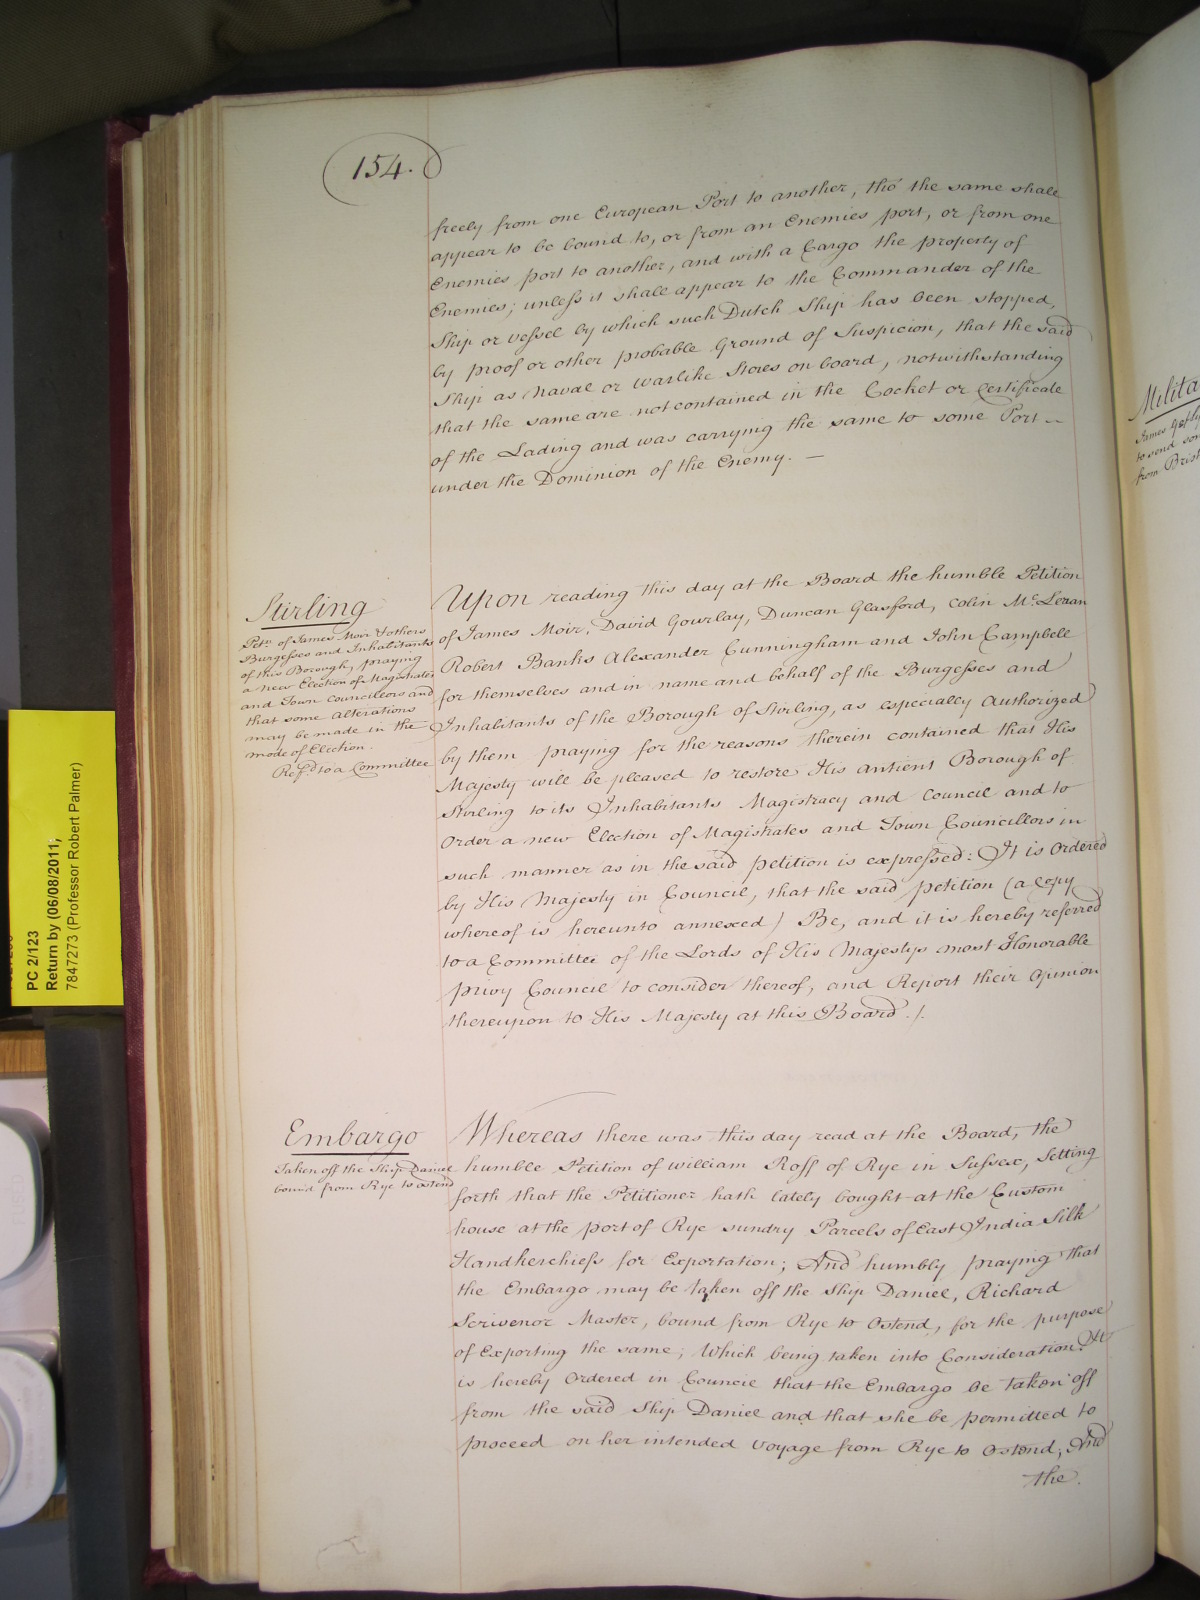 154.
freely from one European Port to another, tho' the same shall
appear to be bound to, or from an Enemies port, or from one
Enemies port to another, and with a Cargo the property of
Enemies; unless it shall appear to the Commander of the
Ship or vessel by which such Dutch Ship has been stopped,
by proof or other probable Ground of Suspicion, that the said
Ship as Naval or warlike Stores on board, notwithstanding
that the same are not contained in the Cocket or Certificate
of the Lading and was carrying the same to some Port
under the Dominion of the Enemy. —
Stirling
Petn. of James Moir & others
Burgesses and Inhabitants
of this Borough, praying
a new Election of Magistrates
and Town Councillors and
that some alterations
may be made in the
mode of Election.
Ref'd to a Committee
Upon reading this day at the Board the humble Petition
of James Moir, David Gourlay, Duncan Glasford, Colin Mc.Leran
Robert Banks Alexander Cunningham and John Campbell
for themselves and in name and behalf of the Burgesses and
Inhabitants of the Borough of Stirling, as especially Authorized
by them praying for the reasons therein contained that His
Majesty will be pleased to restore His antient Borough of
Stirling to its Inhabitants Magistracy and Council and to
Order a new Election of Magistrates and Town Councillors in
such manner as in the said petition is expressed: It is Ordered
by His Majesty in Council, that the said petition (a Copy
whereof is hereunto annexed) Be, and it is hereby referred
to a Committee of the Lords of His Majestys most Honorable
privy Council to consider thereof, and Report their Opinion
thereupon to His Majesty at this Board ./.
Embargo
Taken off the Ship Daniel
bound from Rye to Ostend
Whereas there was this day read at the Board, the
humble Petition of William Ross of Rye in Sussex, Setting
forth that the Petitioner hath lately bought at the Custom
house at the port of Rye sundry Parcels of East India Silk
Handkerchiefs for Exportation; And humbly praying that
the Embargo may be taken off the Ship Daniel, Richard
Scrivenor Master, bound from Rye to Ostend, for the purpose
of Exporting the same; Which being taken into Consideration. It
is hereby Ordered in Council that the Embargo be taken off
from the said Ship Daniel and that she be permitted to
proceed on her intended voyage from Rye to Ostend; And
the.
PC 2/123
Return by (06/08/2011;
7847273 (Professor Robert Palmer)
Milita
James
to send
from Brist